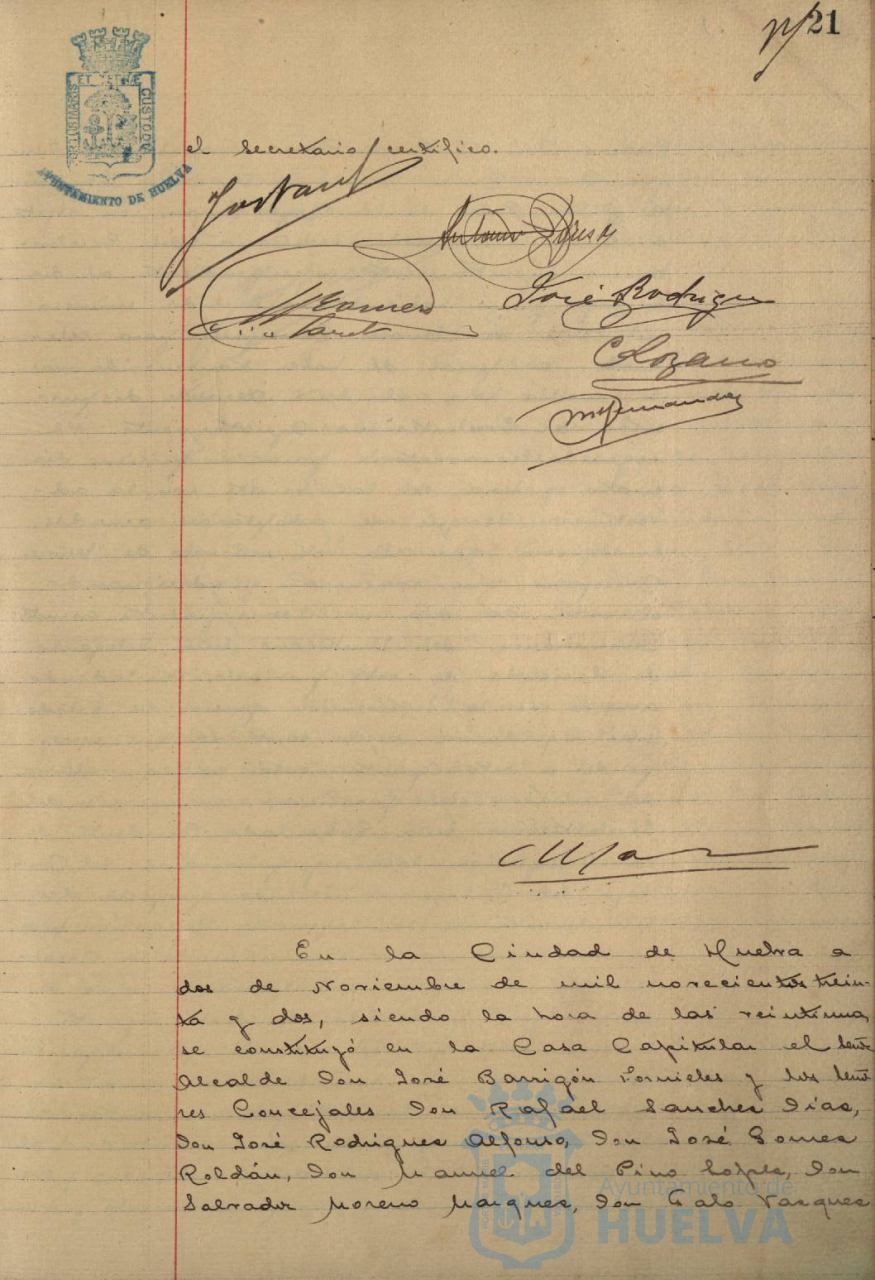 21
PORTUS MARIS ET TERRAE CUSTODIA
AYUNTAMIENTO DE HUELVA
el secretario certifico.
José Rodriguez
C Lozano
M Fernandez
En la Ciudad de Huelva a
dos de Noviembre de mil novecientos trein-
ta y dos, siendo la hora de las veintiuna,
se constituyó en la Casa Capitular el Señor
Alcalde Don José Barrigón Fornieles y los Seño
res Concejales Don Rafael Sanches Dias,
Don José Rodrigues Alfonso, Don José Gomes
Roldán, Don Manuel del Pino Lopes, Don
Salvador Moreno Marques, Don Galo Vasques
Ayuntamiento de
HUELVA